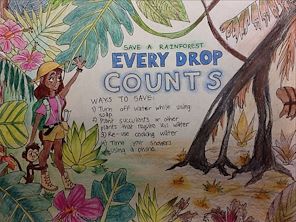 SAVE A RAINFOREST
EVERY DROP
COUNTS
WAYS TO SAVE:
1) Turn off water while using
soap
2) Plant succulents or other
plants that require less water
3) Re-use cooking water
4) Time your showers
using a phone